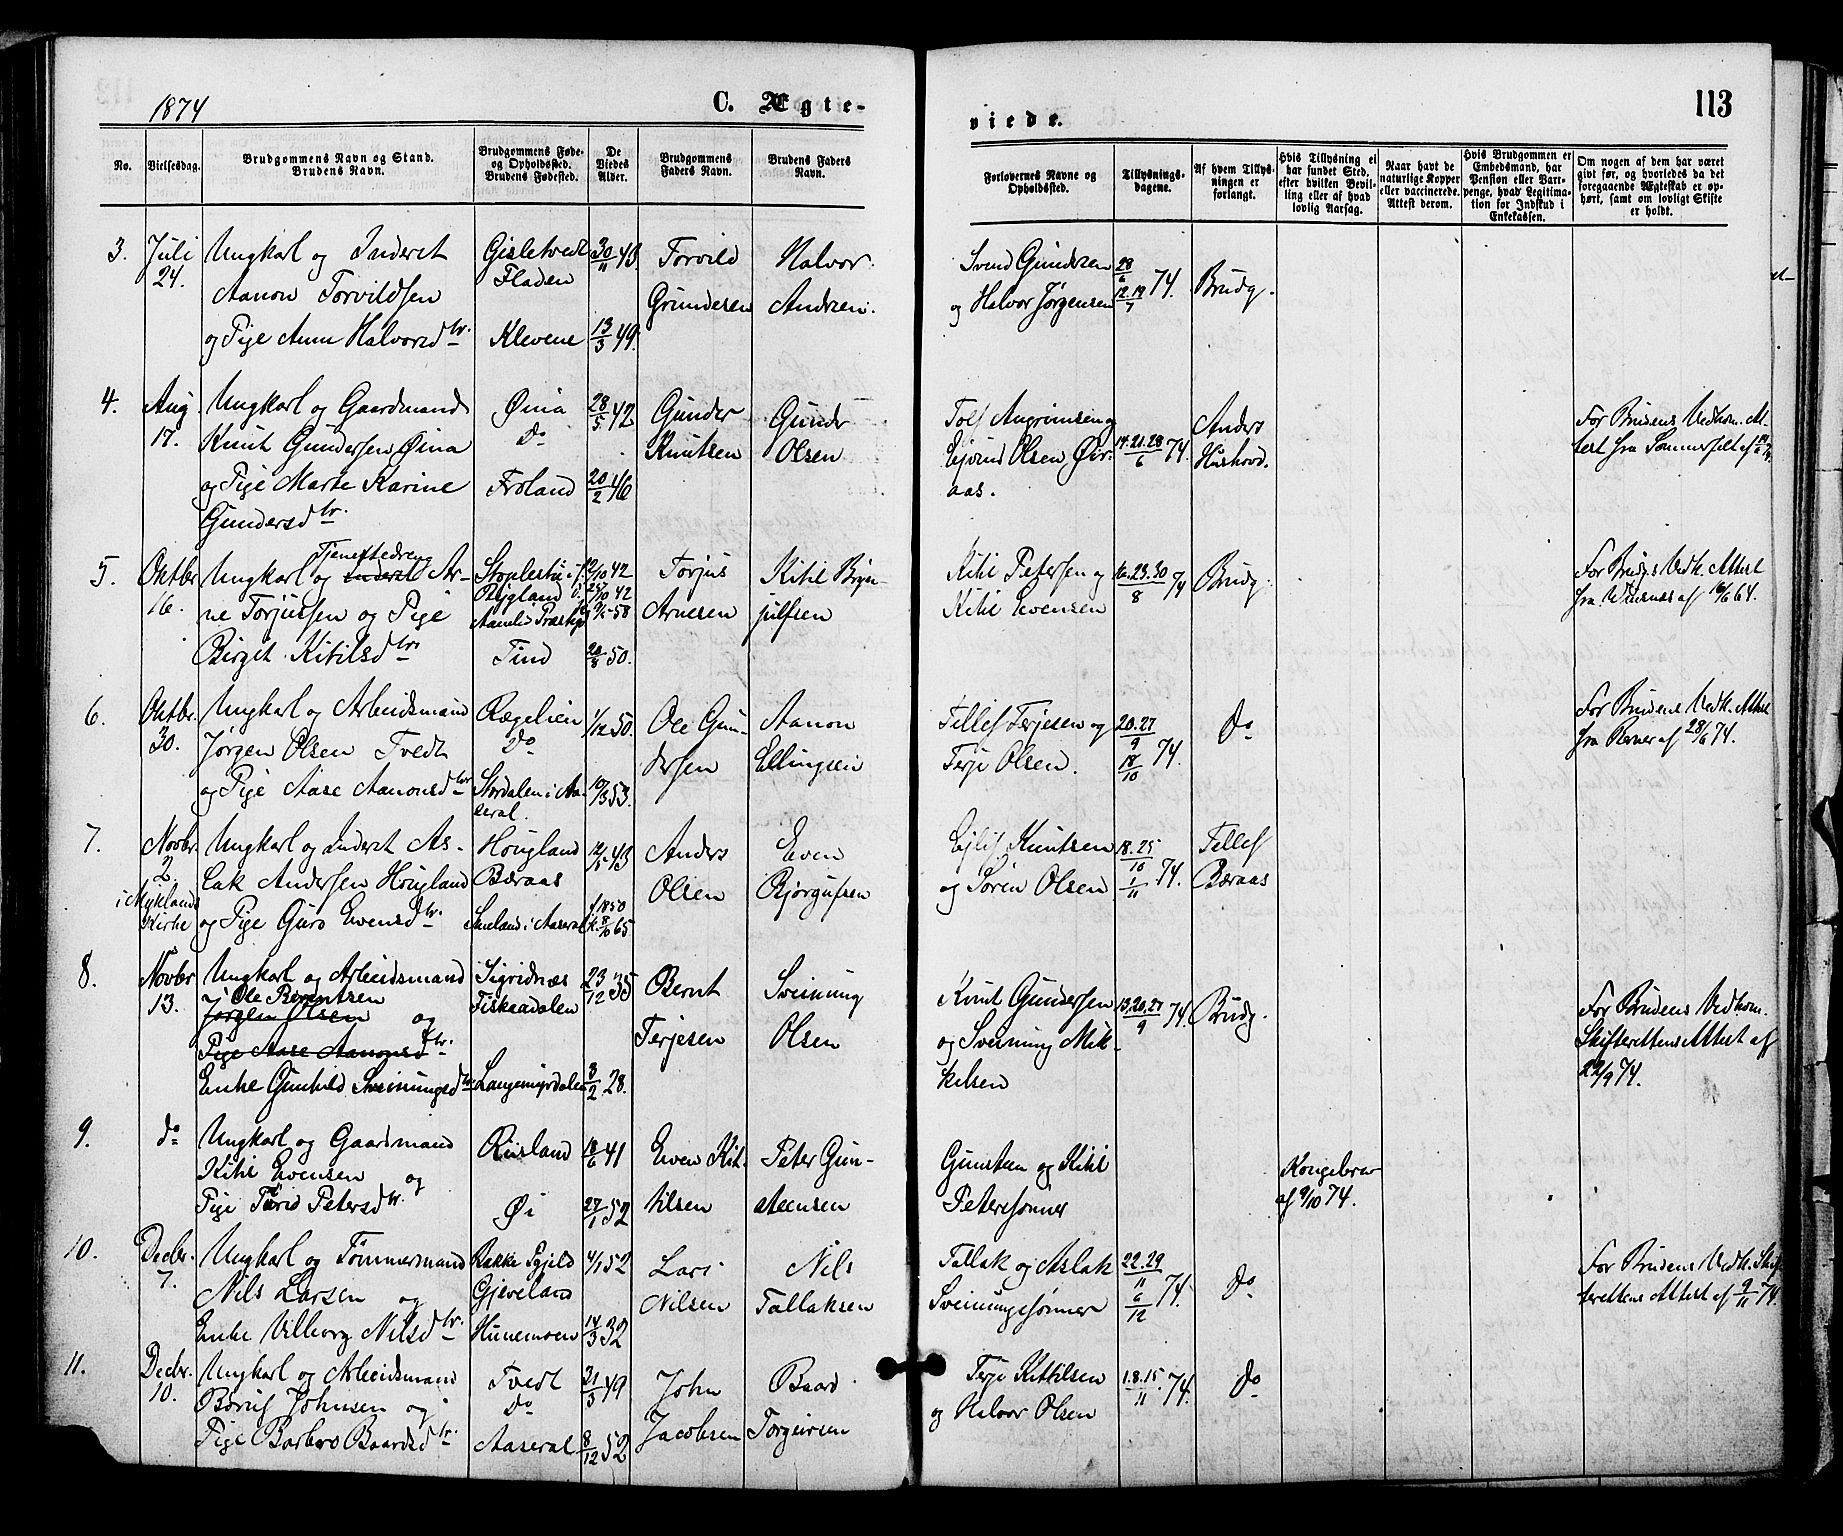 1874
C. Ægte-
viede.
113
No.
Vielsesdag.
Brudgommens Navn og Stand.
Brudens Navn.
Brudgommens Føde-
og Opholdssted.
Brudens Fødested.
De
Viedes
Alder.
Brudgommens
Faders Navn.
Brudens Faders
Navn.
Forlovernes Navne og
Opholdssted.
Tillysnings-
dagene.
Af hvem Tillys-
ningen er
forlangt.
Hvis Tillysning ei
har fundet Sted,
efter hvilken Bevil-
ling eller af hvad
lovlig Aarsag.
Naar havt de
naturlige Kopper
eller vaccinerede.
Attest derom.
Hvis Brudgommen er
Embedsmand, har
Pension eller Vart-
penge, hvad Legitima-
tion for Indskud i
Enkekassen.
Om nogen af dem har været
gift før, og hvorledes da det
foregaaende Ægteskab er op-
hørt, samt om lovligt Skifte
er holdt.
3.
Juli
24.
Ungkarl og Inderst
Aanon Torvildsen
og Pige Anne Halvorsdtr.
Gisletvedt
Fladen
Klevene
30/11 43
13/3 49.
Torvild
Gundersen
Halvor
Andersen.
Svend Gundersen
og Halvor Jørgensen
28/6
12.19/7 74.
Brudg.
4.
Aug.
17.
Ungkarl og Gaardmand
Knut Gundersen Øina
og Pige Marte Karine
Gundersdtr.
Øina
Do
Froland
28/5 42
20/2 46
Gunder
Knutsen
Gunder
Olsen
Ejvind Olsen
aas.
14.21.28/6 74.
Anders
For Brudens Vedkom. At-
test fra Sommerfelt af
5.
Oktbr
16.
Ungkarl og Tjenestedreng Inderst Ar-
ne Torjussen og Pige
Birgit Kitilsdtr.
Tind
20/8 50.
Torjus
Arnesen
Kitil Bryn-
julfsen
Kitil Petersen og
Kitil Evensen
16.23.30/8 74
Brudg.
For Brudgs Vedk. Attest
6.
Oktbr.
30.
Ungkarl og Arbeidsmand
Jørgen Olsen Tvedt
og Pige Aase Aanonsdtr
Rægelien
Do
Stordalen i Aa-
seral.
1/12 50.
10/3 53.
Ole Gun-
dersen
Aanon
Ellingsen
Tellef Terjesen og
Terje Olsen.
20.27/9
18/10 74.
Do
For Brudens Vedk. Attest
7.
Novbr.
2.
i Myklands
Kirke
Ungkarl og Inderst As-
lak Andersen Hougland
og Pige Guro Evensdtr.
Hougland
Bæraas
i Aaseral
12/5 43
f. 1850
k. 8/10 65
Anders
Olsen
Even
Bjørgufsen
Ejlif Knutsen
og Søren Olsen
18.25/10
1/11 74.
Tellef
Bæraas
8.
Novbr
13.
Ungkarl og Arbeidsmand
Ole Berntsen
Jørgen Olsen og
Pige Aase Aanonsdtr.
Enke Gunhild Sveinungsdtr
Sigridnæs
Fiskaadalen
Langemyrdalen
23/12 35
8/2 28.
Bernt
Terjesen
Sveinung
Olsen
Knut Gundersen
og Sveinung Mik-
kelsen
13.20.27/9 74.
Brudg.
For Brudens Vedkom.
Skifterettens Attest af
22/9 74.
9.
do
Ungkarl og Gaardmand
Kitil Evensen og
Pige Turid Petersdtr.
Risland
Øi
18/6 41
27/1 52
Even Kit-
tilsen
Peter Gun-
steensen
Gunsteen og Kitil
Peterssønner
Kongebrev
af 9/10 74.
10.
Decbr.
7.
Ungkarl og Tømmermand
Nils Larsen og
Enke Vilborg Nilsdtr.
Gjeveland
Hunemoen
4/1 52
14/3 32
Lars
Nilsen
Nils
Tallaksen
Tallak og Aslak
Sveinungssønner
22.29/11
6/12 74.
Do
For Brudens Vedk. Skif-
terettens Attest af 9/11 74.
11.
Decbr.
10.
Ungkarl og Arbeidsmand
Børuf Johnsen og
Pige Barbro Baardsdtr.
Tvedt
Do
Aaseral
21/3 49
8/12 52
John
Jacobsen
Baard
Torgeirsen
Terje Kittilsen
og Halvor Olsen
1.8.15/11 74.
Do